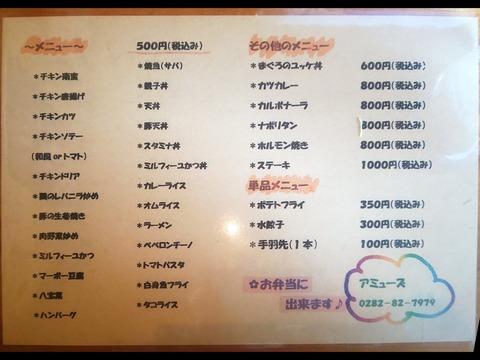 ～メニュー～
500円(税込み)
＊チキン南蛮
＊チキン唐揚げ
＊チキンカツ
＊チキンソテー
(和風 or トマト)
＊チキンドリア
＊鶏のレバニラ炒め
＊豚の生姜焼き
＊肉野菜炒め
＊ミルフィーユかつ
＊マーボー豆腐
＊八宝菜
＊ハンバーグ
＊焼魚(サバ)
＊親子丼
＊天丼
＊豚天丼
＊スタミナ丼
＊ミルフィーユかつ丼
＊カレーライス
＊オムライス
＊ラーメン
＊ペペロンチーノ
＊トマトパスタ
＊白身魚フライ
＊タコライス
その他のメニュー
＊まぐろのユッケ丼 600円(税込み)
＊カツカレー 800円(税込み)
＊カルボナーラ 800円(税込み)
＊ナポリタン 800円(税込み)
＊ホルモン焼き 800円(税込み)
＊ステーキ 1000円(税込み)
単品メニュー
＊ポテトフライ 350円(税込み)
＊水餃子 300円(税込み)
＊手羽先(1本) 100円(税込み)
✿お弁当に
出来ます♪
アミューズ
0282-82-7979